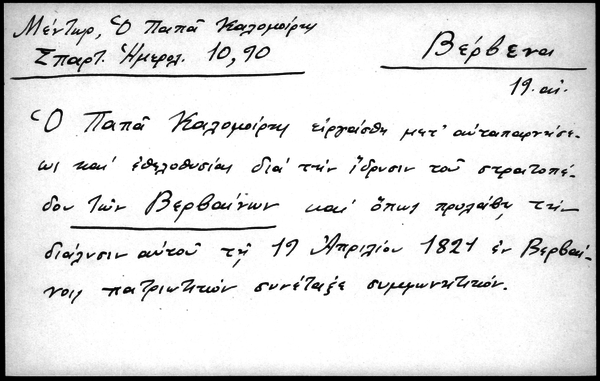 Μέντωρ, Ὁ Παπᾶ Καλομοίρης
Σπαρτ. Ἡμερολ. 10, 90
Βέρβενα
19. αἰ.
Ὁ Παπᾶ Καλομοίρης εἰργάσθη μετ' αὐταπαρνήσε-
ως καί ἐθελοθυσίας διά τήν ἵδρυσιν τοῦ στρατοπέ-
δου τῶν Βερβαίνων καί ὅπως προλάβῃ τήν
διάλυσιν αὐτοῦ τῇ 19 Ἀπριλίου 1821 ἐν Βερβαί-
νοις πατριωτικόν συνέταξε συμφωνητικόν.